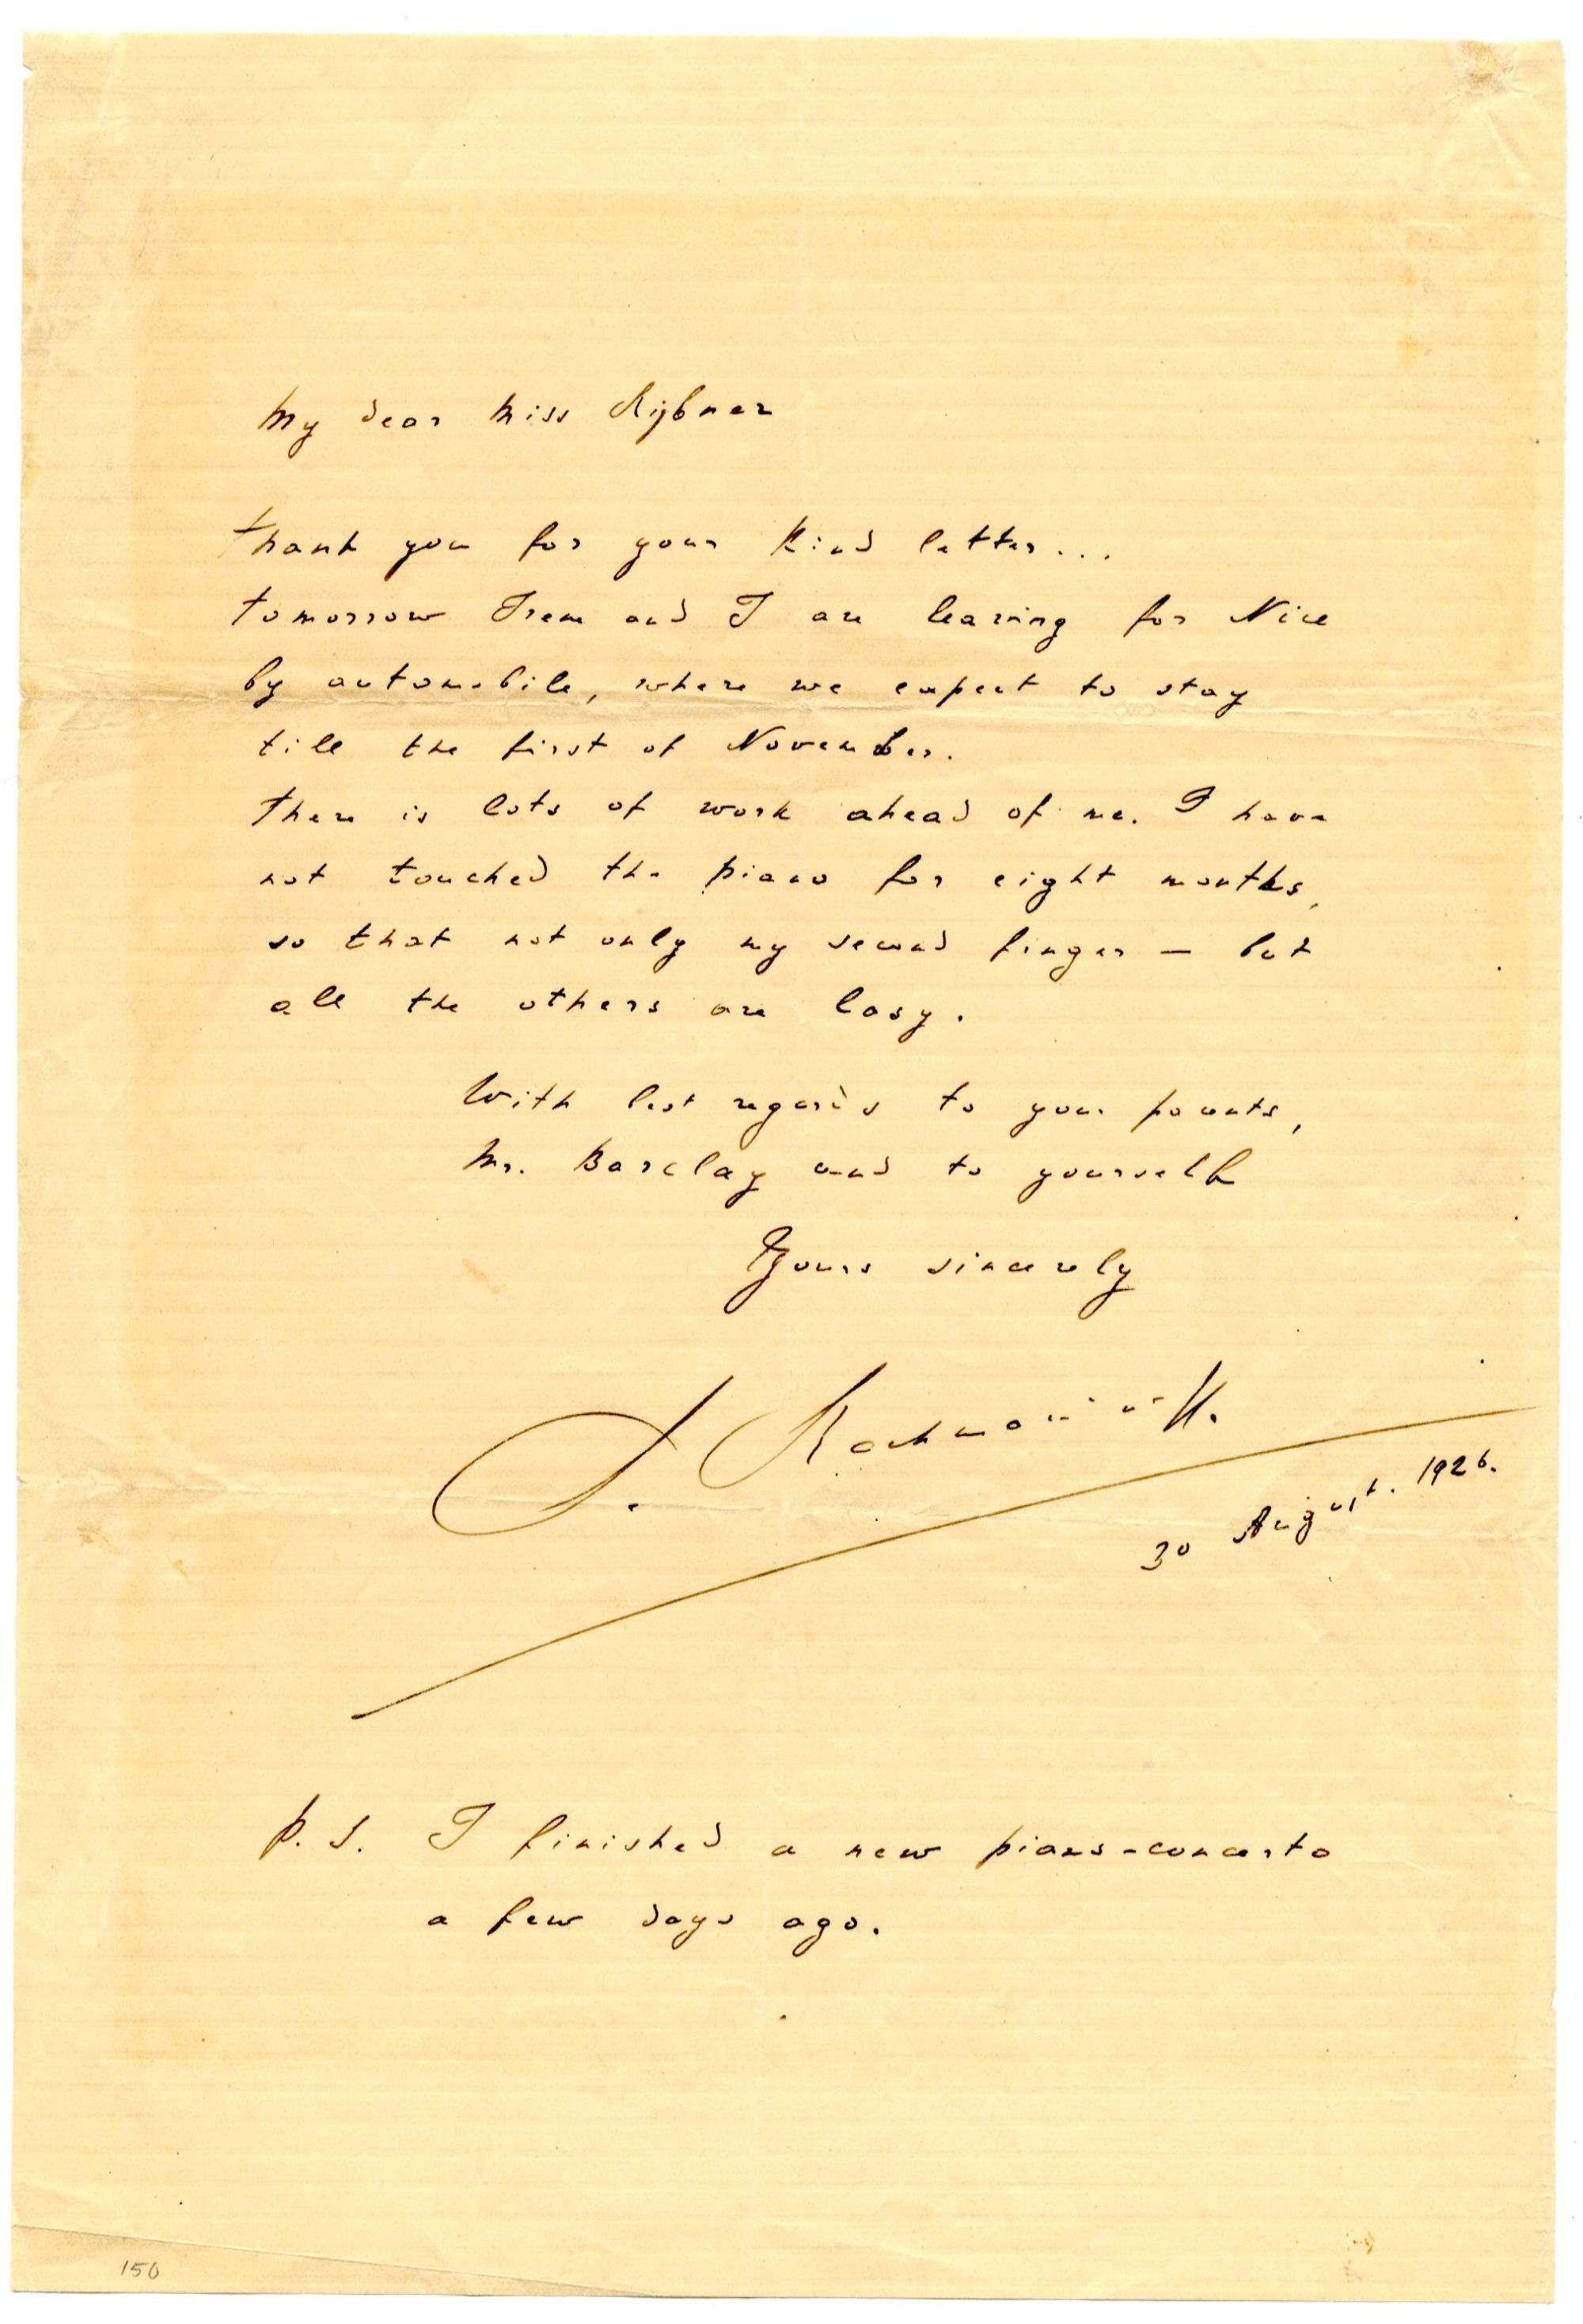 My dear Miss Rybner
Thank you for your kind letter...
Tomorrow Irene and I are leaving for Nice
by automobile, where we expect to stay
till the first of November.
There is lots of work ahead of me. I have
not touched the piano for eight months,
so that not only my second finger — but
all the others are lasy.
With best regards to your parents,
Mr. Barclay and to yourself
Yours sincerely
S. Rachmaninoff.
30 August. 1926.
P. S. I finished a new piano-concerto
a few days ago.
150